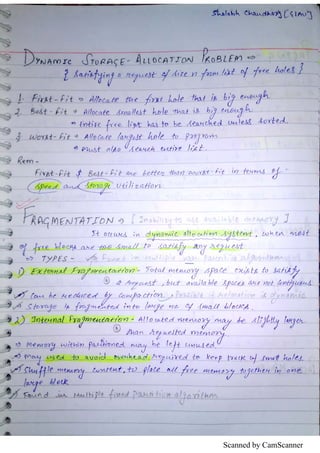 Shalabh Chaudhary [GLAU]
DYNAMIC STORAGE-ALLOCATION PROBLEM ⇒
{ Satisfying a request of size n from list of free holes }
1. First-Fit ⇒ Allocate the first hole that is big enough.
2. Best-Fit ⇒ Allocate smallest hole that is big enough.
⇒ Entire free list has to be searched unless sorted.
3. Worst-Fit ⇒ Allocate largest hole to program
⇒ Must also search entire list.
Rem -
First-Fit & Best-Fit are better than worst-fit in terms of -
speed and storage utilization.
FRAGMENTATION ⇒ [Inability to use available memory]
It occurs in dynamic allocation system, when most
of free blocks are too small to satisfy any request
⇒ TYPES - Found in multiple
1) External Fragmentation - Total memory space exists to satisfy
a request, but available spaces are not contiguous
✓ Can be reduced by compaction, Possible if relocation is dynamic
Storage is fragmented into large no. of small blocks.
2) Internal Fragmentation - Allocated memory may be slightly larger
than requested memory
⇒ Memory within partitioned may be left unused
⇒ May used to avoid overhead required to keep track of small holes
Shuffle memory content, to place all free memory together in one
large block
Found in multiple fixed partition algorithm
Scanned by CamScanner